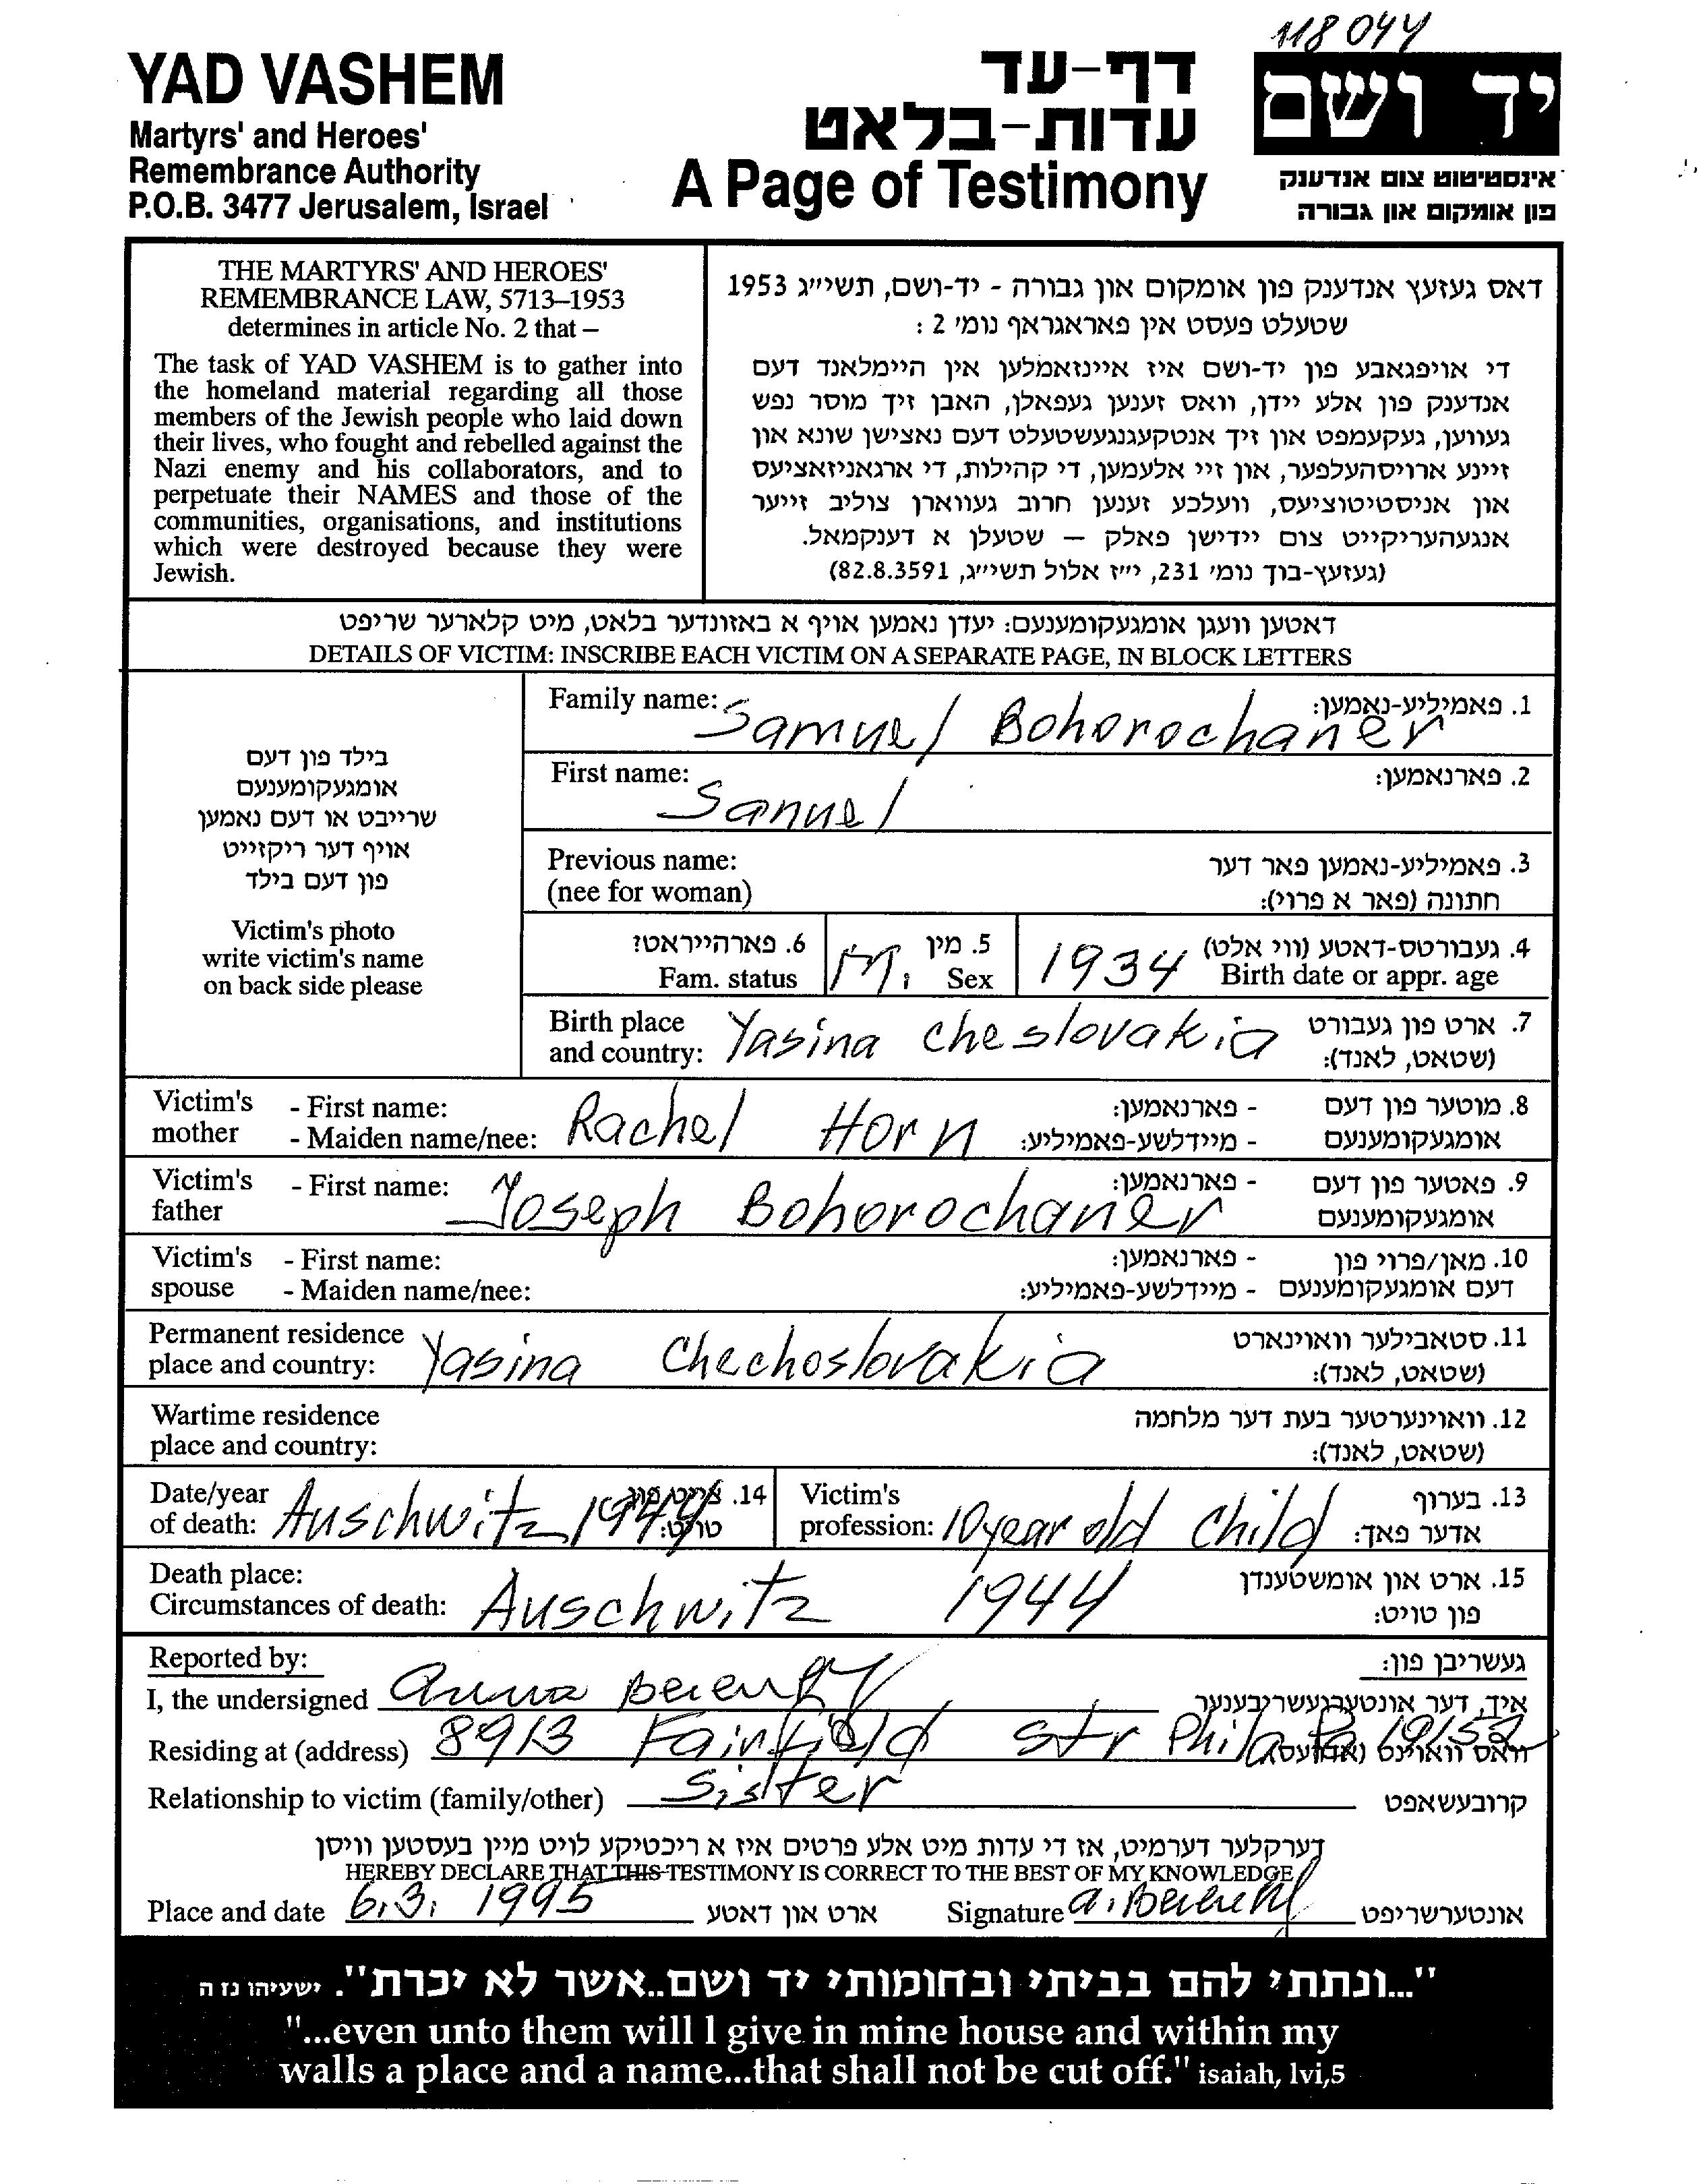 118044
YAD VASHEM
Martyrs' and Heroes'
Remembrance Authority
P.O.B. 3477 Jerusalem, Israel
דף-עד
עדות-בלאט
A Page of Testimony
יד ושם
אינסטיטוט צום אנדענק
פון אומקום און גבורה
THE MARTYRS' AND HEROES'
REMEMBRANCE LAW, 5713–1953
determines in article No. 2 that –
The task of YAD VASHEM is to gather into
the homeland material regarding all those
members of the Jewish people who laid down
their lives, who fought and rebelled against the
Nazi enemy and his collaborators, and to
perpetuate their NAMES and those of the
communities, organisations, and institutions
which were destroyed because they were
Jewish.
דאס געזעץ אנדענק פון אומקום און גבורה - יד-ושם, תשי״ג 1953
שטעלט פעסט אין פאראגראף נומ׳ 2 :
די אויפגאבע פון יד-ושם איז איינזאמלען אין היימלאנד דעם
אנדענק פון אלע יידן, וואס זענען געפאלן, האבן זיך מוסר נפש
געווען, געקעמפט און זיך אנטקעגנגעשטעלט דעם נאצישן שונא און
זיינע ארויסהעלפער, און זיי אלעמען, די קהילות, די ארגאניזאציעס
און אניסטיטוציעס, וועלכע זענען חרוב געווארן צוליב זייער
אנגעהעריקייט צום יידישן פאלק – שטעלן א דענקמאל.
(געזעץ-בוך נומ׳ 231, י״ז אלול תשי״ג, 82.8.3591)
דאטען וועגן אומגעקומענעם: יעדן נאמען אויף א באזונדער בלאט, מיט קלארער שריפט
DETAILS OF VICTIM: INSCRIBE EACH VICTIM ON A SEPARATE PAGE, IN BLOCK LETTERS
בילד פון דעם
אומגעקומענעם
שרייבט או דעם נאמען
אויף דער ריקזייט
פון דעם בילד
Victim's photo
write victim's name
on back side please
Family name: Samuel Bohorochaner 1. פאמיליע-נאמען:
First name: Sanuel 2. פארנאמען:
Previous name: 3. פאמיליע-נאמען פאר דער
(nee for woman) חתונה (פאר א פרוי):
6. פארהייראט? 5. מין 4. געבורטס-דאטע (ווי אלט)
Fam. status M. Sex 1934 Birth date or appr. age
Birth place Yasina cheslovakia 7. ארט פון געבורט
and country: (שטאט, לאנד):
Victim's - First name: - פארנאמען: 8. מוטער פון דעם
mother - Maiden name/nee: Rachel Horn - מיידלשע-פאמיליע: אומגעקומענעם
Victim's - First name: Joseph Bohorochaner - פארנאמען: 9. פאטער פון דעם
father אומגעקומענעם
Victim's - First name: - פארנאמען: 10. מאן/פרוי פון
spouse - Maiden name/nee: - מיידלשע-פאמיליע: דעם אומגעקומענעם
Permanent residence 11. סטאבילער וואוינארט
place and country: Yasina Chechoslovakia (שטאט, לאנד):
Wartime residence 12. וואוינערטער בעת דער מלחמה
place and country: (שטאט, לאנד):
Date/year 14. צייט פון Victim's 13. בערוף
of death: Auschwitz 1944 טויט: profession: 10 year old child אדער פאך:
Death place: 15. ארט און אומשטענדן
Circumstances of death: Auschwitz 1944 פון טויט:
Reported by: געשריבן פון:
I, the undersigned Anna איך, דער אונטערגעשריבענער
Residing at (address) 8913 Fairfield str Phila Pa 19152 וואס וואוינט (אדרעס)
Relationship to victim (family/other) Sister קרובעשאפט
דערקלער דערמיט, אז די עדות מיט אלע פרטים איז א ריכטיקע לויט מיין בעסטען וויסן
HEREBY DECLARE THAT THIS TESTIMONY IS CORRECT TO THE BEST OF MY KNOWLEDGE
Place and date 6.3. 1995 ארט און דאטע Signature אונטערשריפט
"...ונתתי להם בביתי ובחומותי יד ושם..אשר לא יכרת". ישעיהו נז ה
"...even unto them will I give in mine house and within my
walls a place and a name...that shall not be cut off." isaiah, lvi,5